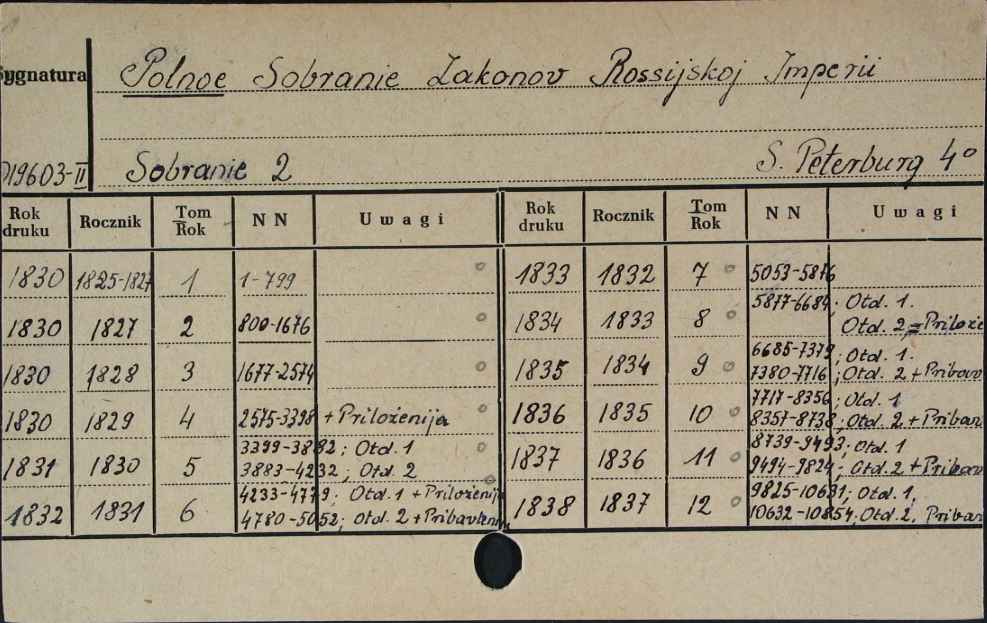 Sygnatura Polnoe Sobranie Zakonov Rossijskoj Imperii
19603-II Sobranie 2 S. Peterburg 4º
Rok druku Rocznik Tom Rok NN Uwagi Rok druku Rocznik Tom Rok NN Uwagi
1830 1825-1827 1 1-799 1833 1832 7 5053-5876
1830 1827 2 800-1676 1834 1833 8 5877-6684; Otd. 1.
Otd. 2 = Priloże
1830 1828 3 1677-2574 1835 1834 9 6685-7379; Otd. 1.
7380-7716; Otd. 2 + Pribav
1830 1829 4 2575-3398 + Priloženija 1836 1835 10 7717-8356; Otd. 1
8357-8738; Otd. 2 + Pribav
1831 1830 5 3399-3882; Otd. 1 1837 1836 11 8739-9493; Otd. 1
3883-4232; Otd. 2 9494-9824; Otd. 2 + Pribav
1832 1831 6 4233-4779. Otd. 1 + Priloženij 1838 1837 12 9825-10631; Otd. 1.
4780-5052; Otd. 2 + Pribavleni 10632-10854. Otd. 2. Pribav